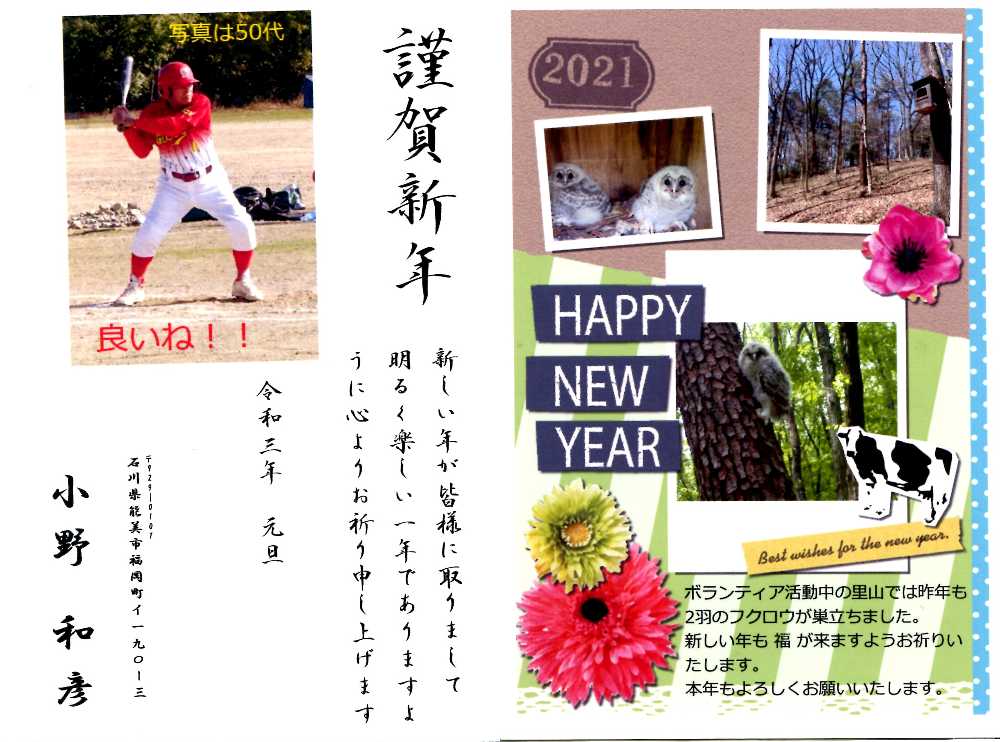 写真は50代
良いね！！
謹賀新年
新しい年が皆様に取りまして
明るく楽しい一年でありますよ
うに心よりお祈り申し上げます
令和三年　元旦
〒929-0107
石川県能美市福岡町イ一九〇ー三
小野　和彦
2021
HAPPY
NEW
YEAR
Best wishes for the new year.
ボランティア活動中の里山では昨年も
2羽のフクロウが巣立ちました。
新しい年も 福 が来ますようお祈りい
たします。
本年もよろしくお願いいたします。